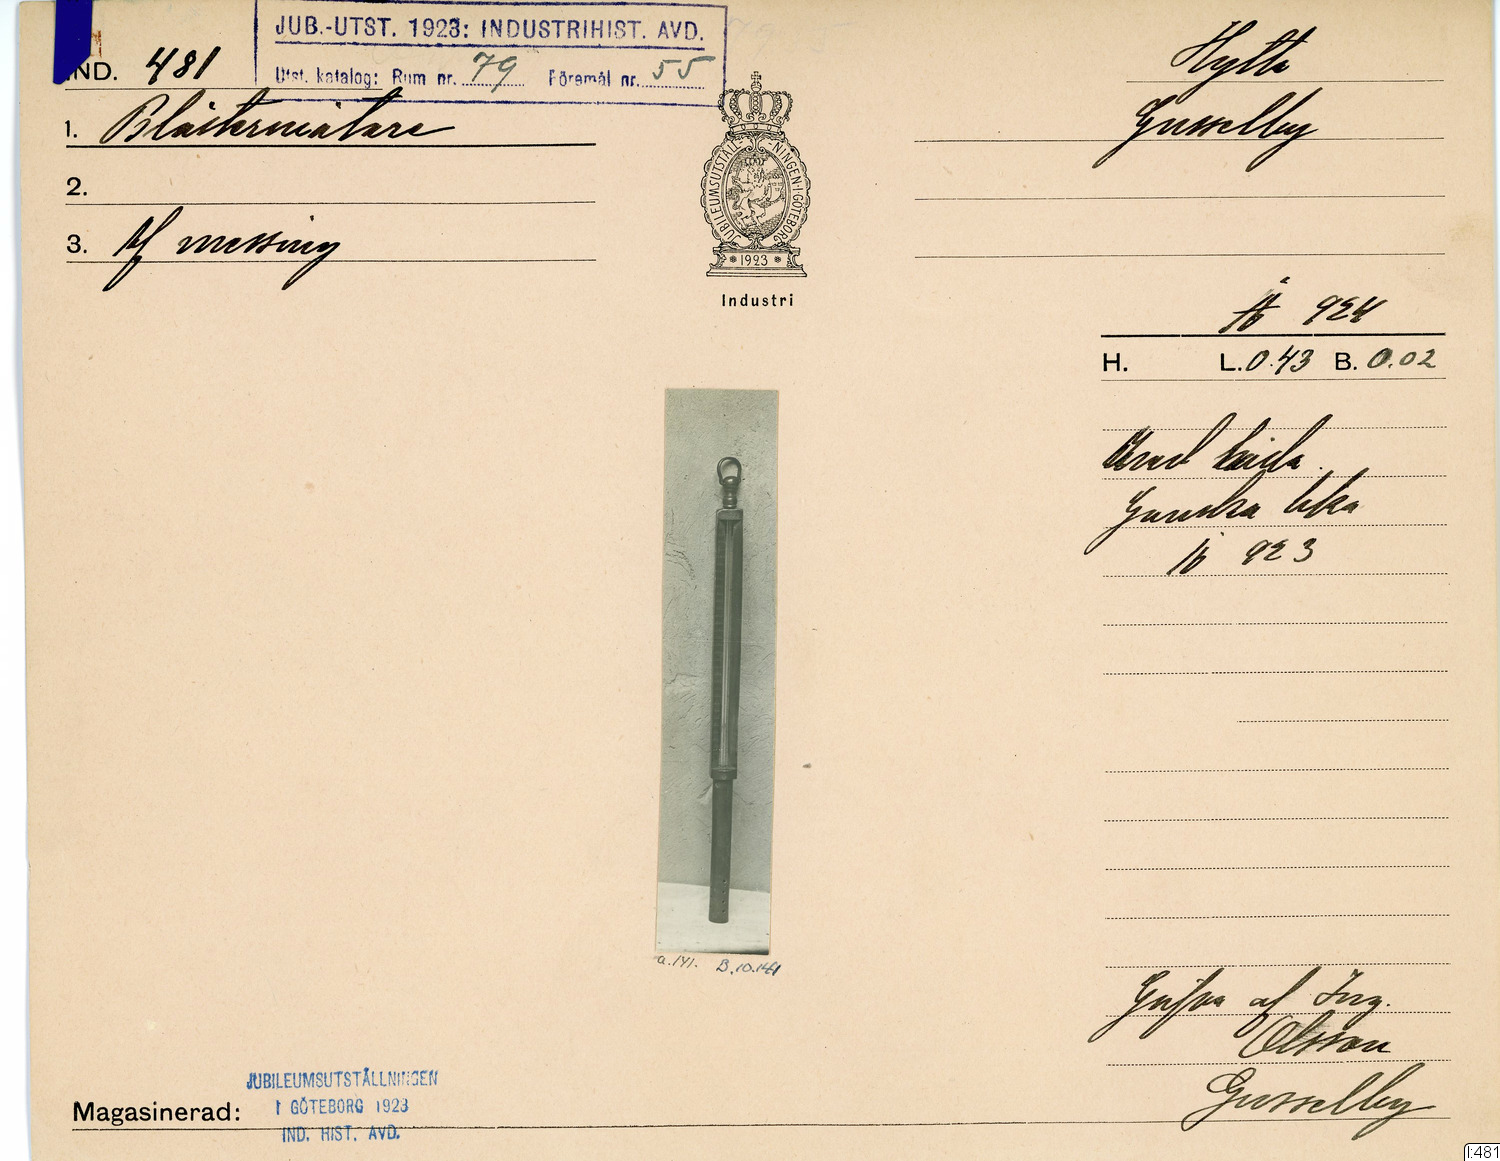 JUB.-UTST. 1923: INDUSTRIHIST. AVD.
Utst. katalog: Rum nr. 79 Föremål nr. 55
IND. 481
1. Blästermätare
2.
3. Af messing
JUBILEUMSUTSTÄLLNINGEN I GÖTEBORG
1923
Industri
Hytte
Gusselby
Å 924
H. L. 0.43 B. 0.02
Ganska lika
Å 923
a.141. B.10.141
Gåfva af Ing.
Olsson
Gusselby
Magasinerad:
JUBILEUMSUTSTÄLLNINGEN
I GÖTEBORG 1923
IND. HIST. AVD.
I:481